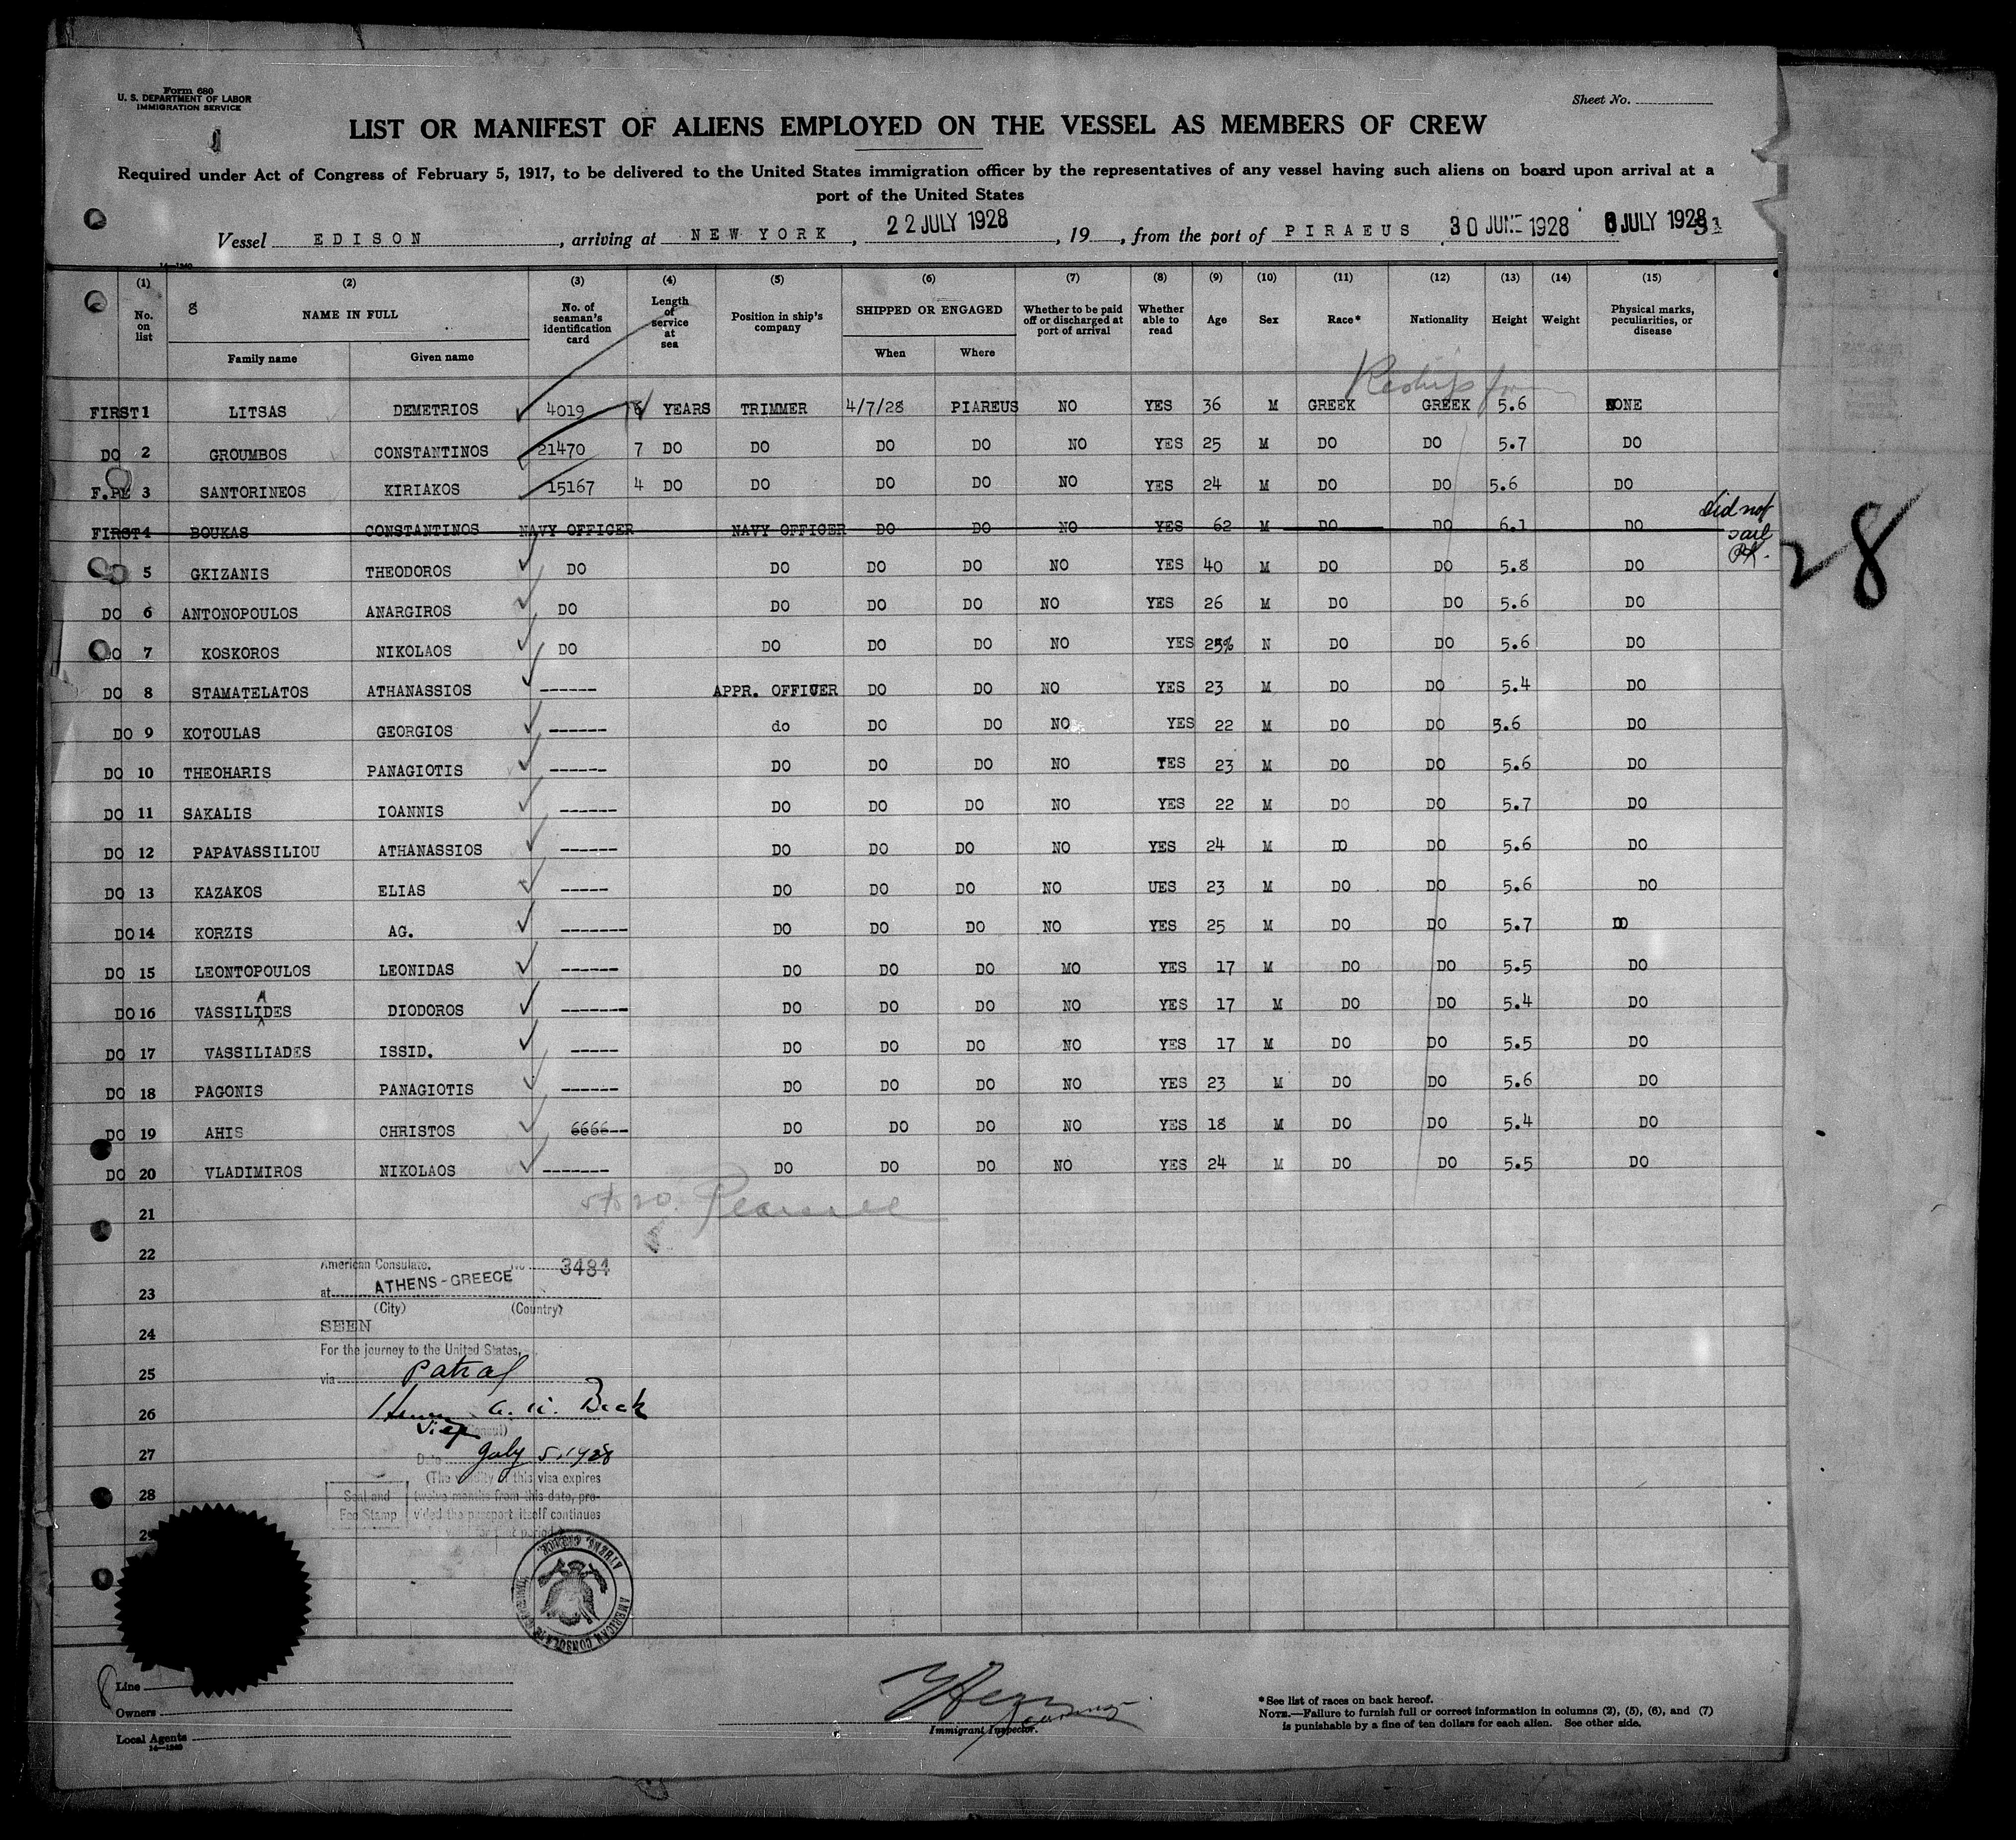 Form 680
U. S. DEPARTMENT OF LABOR
IMMIGRATION SERVICE
Sheet No.
LIST OR MANIFEST OF ALIENS EMPLOYED ON THE VESSEL AS MEMBERS OF CREW
Required under Act of Congress of February 5, 1917, to be delivered to the United States immigration officer by the representatives of any vessel having such aliens on board upon arrival at a
port of the United States
Vessel EDISON, arriving at NEW YORK, 22 JULY 1928, 19, from the port of PIRAEUS, 30 JUNE 1928 6 JULY 1928
14—1240
(1) (2) (3) (4) (5) (6) (7) (8) (9) (10) (11) (12) (13) (14) (15)
No. on list 8 NAME IN FULL Family name Given name No. of seaman's identification card Length of service at sea Position in ship's company SHIPPED OR ENGAGED When Where Whether to be paid off or discharged at port of arrival Whether able to read Age Sex Race* Nationality Height Weight Physical marks, peculiarities, or disease
FIRST 1 LITSAS DEMETRIOS 4019 6 YEARS TRIMMER 4/7/28 PIAREUS NO YES 36 M GREEK GREEK 5.6 NONE
DO 2 GROUMBOS CONSTANTINOS 21470 7 DO DO DO DO NO YES 25 M DO DO 5.7 DO
3 SANTORINEOS KIRIAKOS 15167 4 DO DO DO DO NO YES 24 M DO DO 5.6 DO
FIRST 4 BOUKAS CONSTANTINOS NAVY OFFICER NAVY OFFICER DO DO NO YES 62 M DO DO 6.1 DO did not sail
5 GKIZANIS THEODOROS DO DO DO DO NO YES 40 M DO DO 5.8 DO
DO 6 ANTONOPOULOS ANARGIROS DO DO DO DO NO YES 26 M DO DO 5.6 DO
DO 7 KOSKOROS NIKOLAOS DO DO DO DO NO YES 25% N DO DO 5.6 DO
DO 8 STAMATELATOS ATHANASSIOS ------ APPR. OFFICER DO DO NO YES 23 M DO DO 5.4 DO
DO 9 KOTOULAS GEORGIOS ------ do DO DO NO YES 22 M DO DO 5.6 DO
DO 10 THEOHARIS PANAGIOTIS ------ DO DO DO NO YES 23 M DO DO 5.6 DO
DO 11 SAKALIS IOANNIS ------ DO DO DO NO YES 22 M DO DO 5.7 DO
DO 12 PAPAVASSILIOU ATHANASSIOS ------ DO DO DO NO YES 24 M DO DO 5.6 DO
DO 13 KAZAKOS ELIAS ----- DO DO DO NO UES 23 M DO DO 5.6 DO
DO 14 KORZIS AG. ------- DO DO DO NO YES 25 M DO DO 5.7 DO
DO 15 LEONTOPOULOS LEONIDAS ------ DO DO DO MO YES 17 M DO DO 5.5 DO
DO 16 VASSILIADES DIODOROS ------- DO DO DO NO YES 17 M DO DO 5.4 DO
DO 17 VASSILIADES ISSID. ----- DO DO DO NO YES 17 M DO DO 5.5 DO
DO 18 PAGONIS PANAGIOTIS ------ DO DO DO NO YES 23 M DO DO 5.6 DO
DO 19 AHIS CHRISTOS 6666-- DO DO DO NO YES 18 M DO DO 5.4 DO
DO 20 VLADIMIROS NIKOLAOS ------- DO DO DO NO YES 24 M DO DO 5.5 DO
28
21
22
American Consulate. No 3484
23
at ATHENS-GREECE
(City) (Country)
24
SEEN
For the journey to the United States,
25
via Patras
26
Beck
27
Date July 5, 1928
(The validity of this visa expires
28
Seal and Fee Stamp
twelve months from this date, pro-
vided the passport itself continues
29
AMERICAN CONSULATE GENERAL ATHENS, GREECE.
Line
Owners
Local Agents
14—1240
Immigrant Inspector.
*See list of races on back hereof.
NOTE.—Failure to furnish full or correct information in columns (2), (5), (6), and (7)
is punishable by a fine of ten dollars for each alien. See other side.